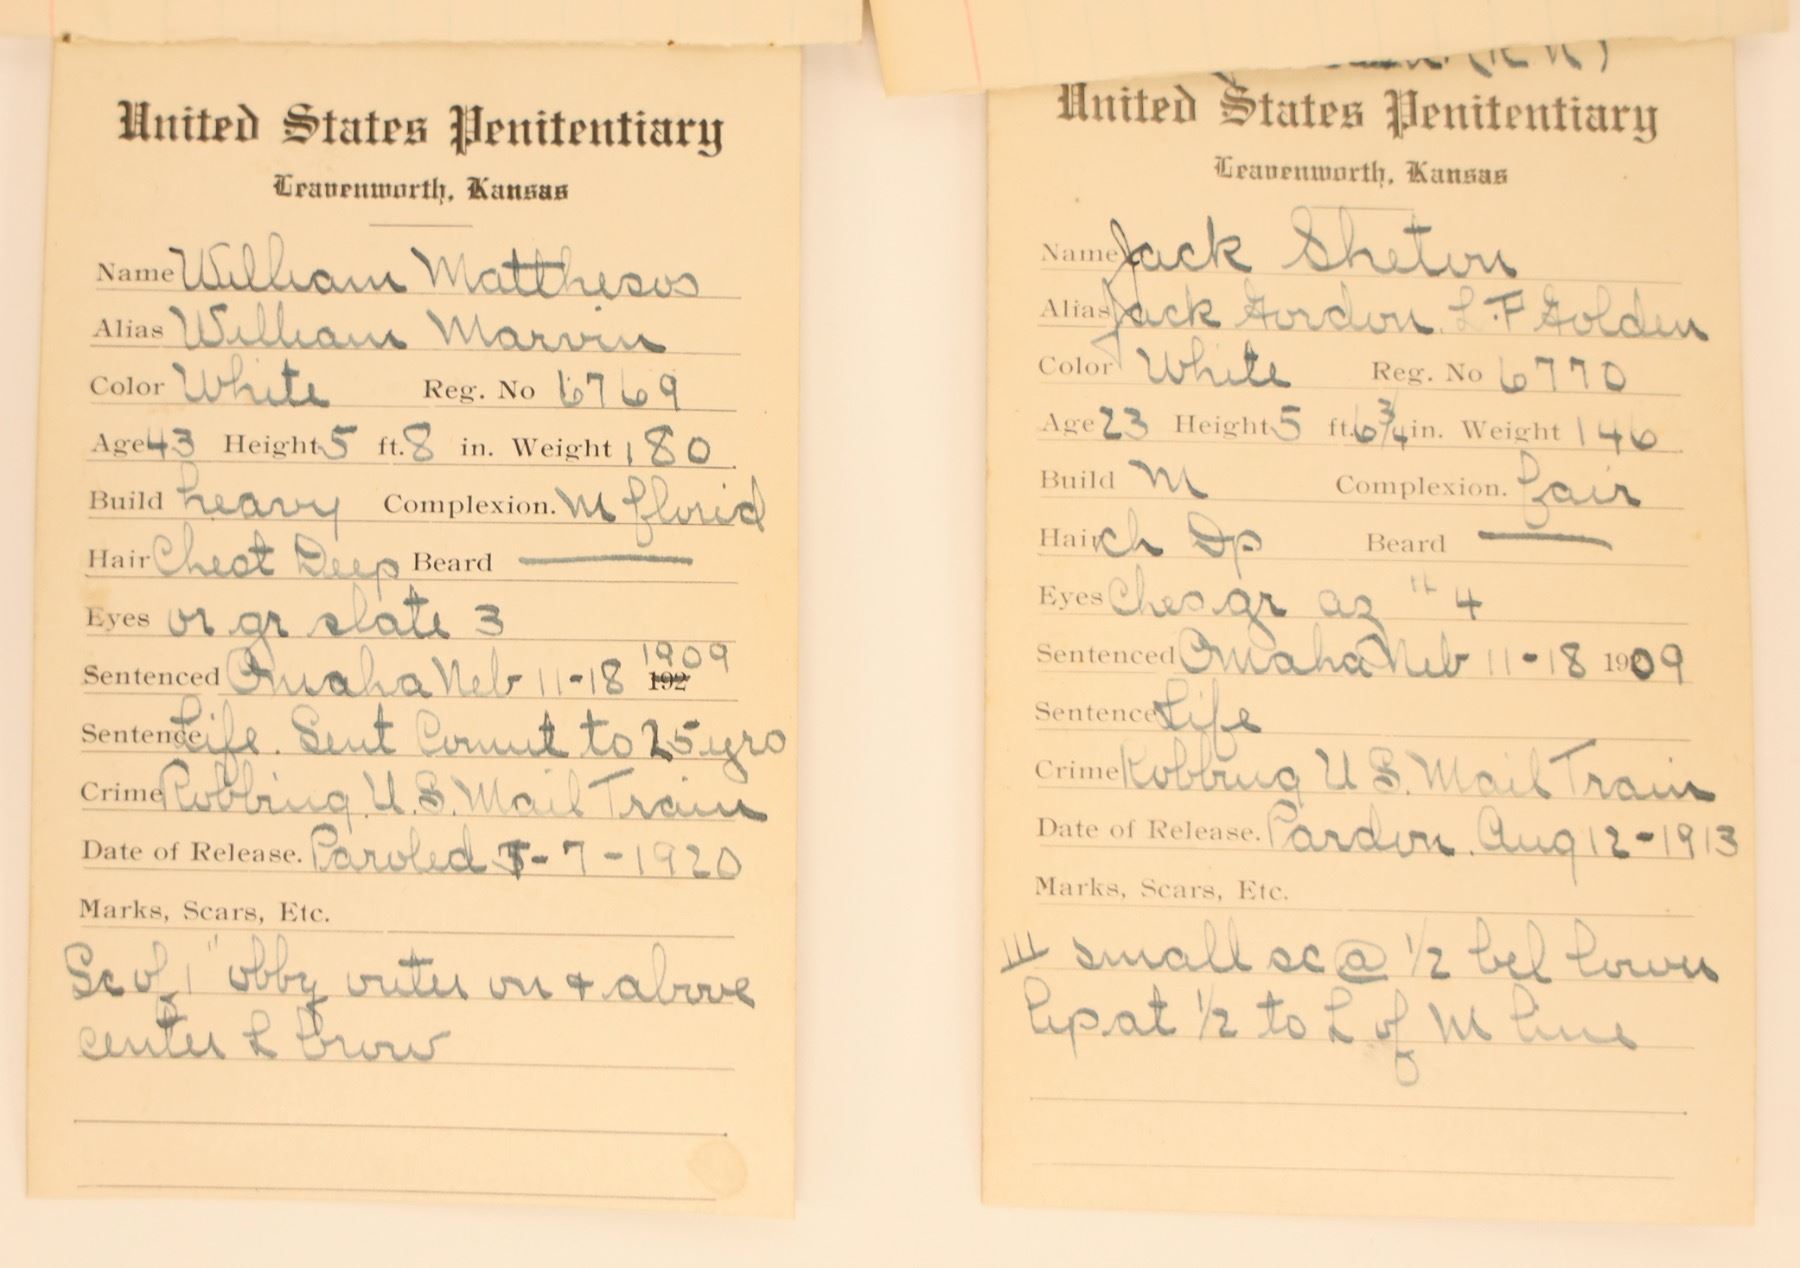 United States Penitentiary
Leavenworth, Kansas
Name William Matthews
Alias William Marvin
Color White Reg. No 6769
Age 43 Height 5 ft. 8 in. Weight 180
Build heavy Complexion. M florid
Hair Chest Deep Beard —
Eyes or gr slate 3
Sentenced Omaha Neb 11-18 1909 192
Sentence Life. Sent Commt to 25 yrs
Crime Robbing U.S. Mail Train
Date of Release. Paroled -7-1920
Marks, Scars, Etc.
Sc of 1" obby outer on & above
center L brow
(R N)
United States Penitentiary
Leavenworth, Kansas
Name Jack Shelton
Alias Jack Gordon. L. F Golden
Color White Reg. No 6770
Age 23 Height 5 ft. 6 3/4 in. Weight 146
Build M Complexion. fair
Hair ch Dp Beard —
Eyes Ches gr az " 4
Sentenced Omaha Neb 11-18 1909
Sentence Life
Crime Robbing U S. Mail Train
Date of Release. Pardon. Aug 12-1913
Marks, Scars, Etc.
III small sc @ 1/2 bel lower
lip at 1/2 to L of M line